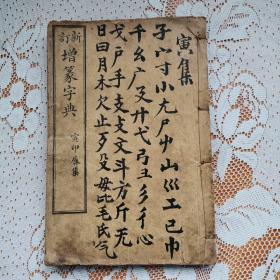 寅集
子宀寸小尢尸屮山巛工己巾
干幺广廴廾弋弓彐彡彳心
戈户手支攴文斗方斤无
日曰月木欠止歹殳毋比毛氏气
新訂
增篆字典
寅卯集